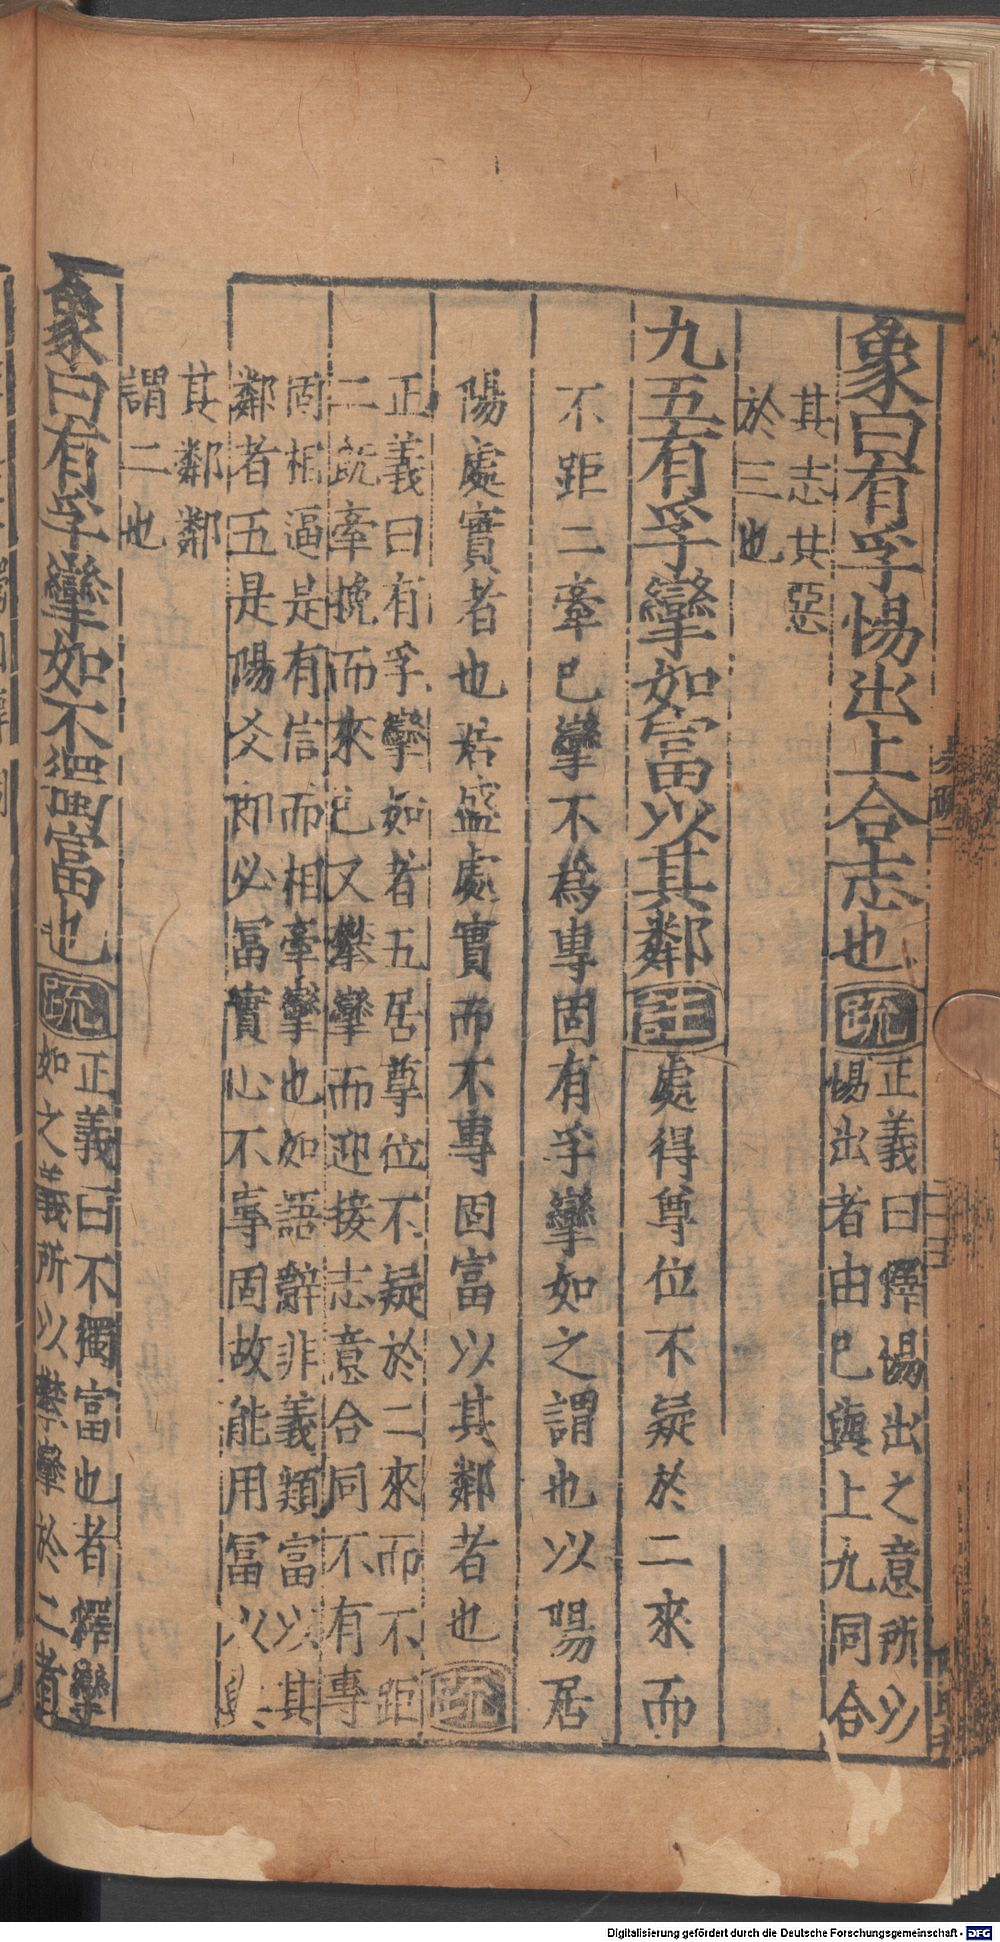 象曰有孚惕出上合志也疏正義曰釋惕出之意所以
惕出者由已與上九同合
其志共惡
於三也
九五有孚攣如富以其鄰註處得尊位不疑於二來而
不距二牽已攣不爲專固有孚攣如之謂也以陽居
陽處實者也居盛處實而不專固富以其鄰者也疏
正義曰有孚攣如者五居尊位不疑於二來而不距
二既牽挽而來已又攀攣而迎接志意合同不有專
固相逼是有信而相牽攣也如語辭非義類富以其
鄰者五是陽爻即必冨實心不專固故能用冨以
其鄰鄰
謂二也
象曰有孚攣如不獨富也疏正義曰不獨富也者釋攣
如之義所以攀攣於二者
Digitalisierung gefördert durch die Deutsche Forschungsgemeinschaft - DFG